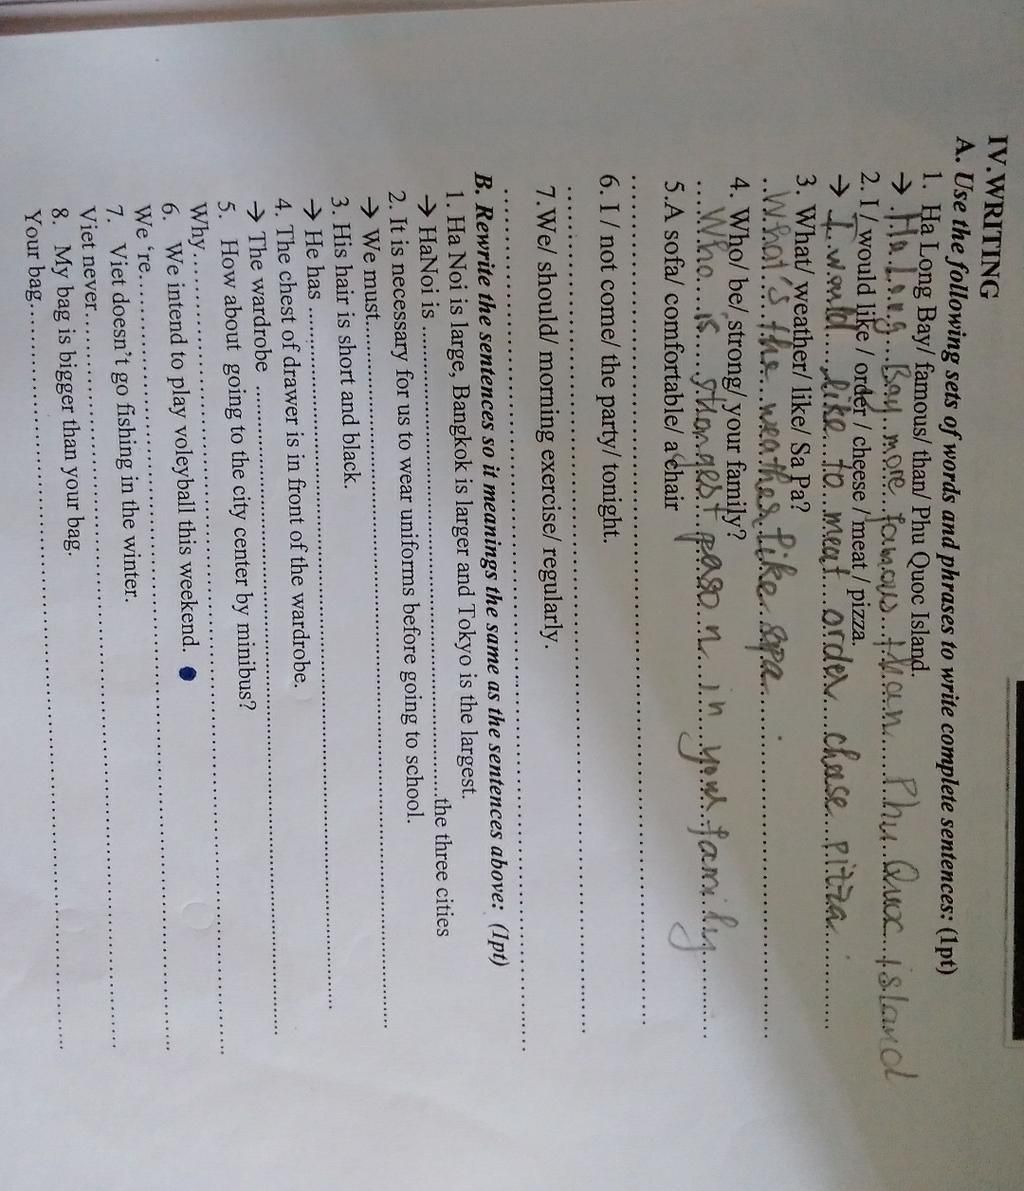 IV.WRITING
A. Use the following sets of words and phrases to write complete sentences: (1pt)
1. Ha Long Bay/ famous/ than/ Phu Quoc Island.
→ Ha Long Bay more famous than Phu Qux island
2. I / would like / order / cheese / meat / pizza.
→ I would like to meat order chese pizza
3. What/ weather/ like/ Sa Pa?
What's the weather like sapa
4. Who/ be/ strong/ your family?
Who is stronges in your family
5.A sofa/ comfortable/ a chair
6. I / not come/ the party/ tonight.
7.We/ should/ morning exercise/ regularly.
B. Rewrite the sentences so it meanings the same as the sentences above: (1pt)
1. Ha Noi is large, Bangkok is larger and Tokyo is the largest.
→ HaNoi is ..........the three cities
2. It is necessary for us to wear uniforms before going to school.
→ We must..........
3. His hair is short and black.
→ He has ..........
4. The chest of drawer is in front of the wardrobe.
→ The wardrobe ..........
5. How about going to the city center by minibus?
Why..........
6. We intend to play voleyball this weekend.
We 're..........
7. Viet doesn't go fishing in the winter.
Viet never..........
8. My bag is bigger than your bag.
Your bag..........